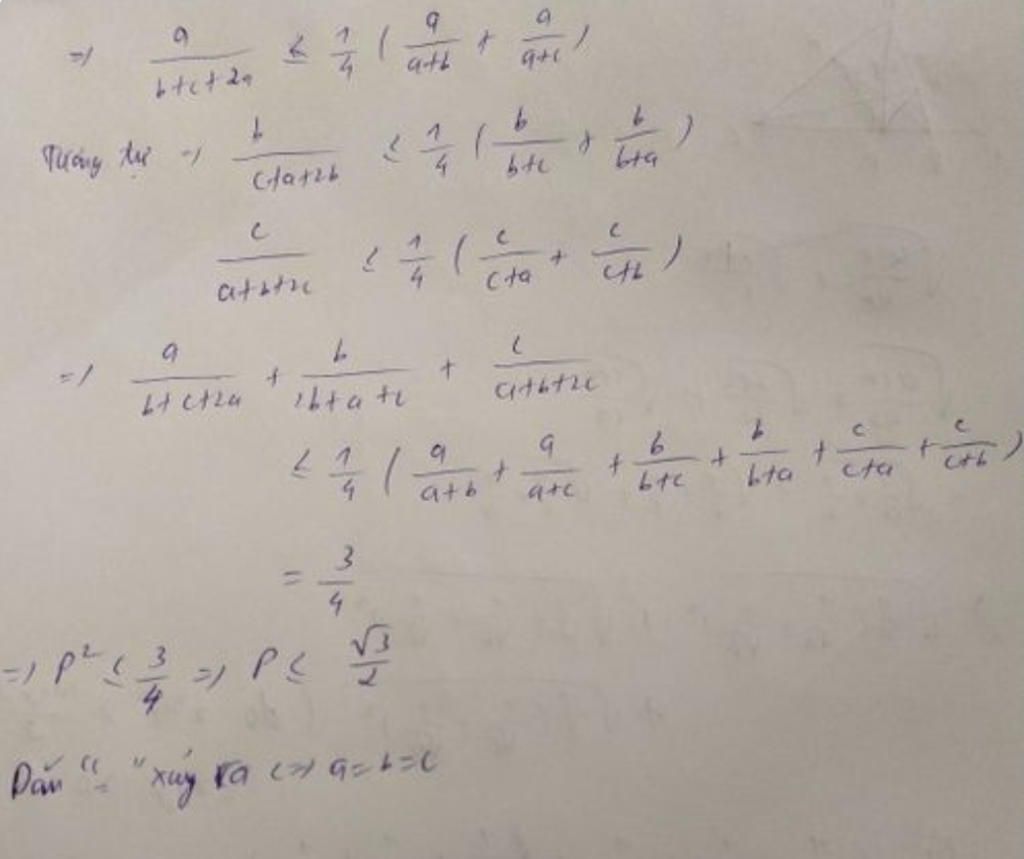 => a/(b+c+2a) ≤ 1/4 ( a/(a+b) + a/(a+c) )
Tương tự => b/(c+a+2b) ≤ 1/4 ( b/(b+c) + b/(b+a) )
c/(a+b+2c) ≤ 1/4 ( c/(c+a) + c/(c+b) )
=> a/(b+c+2a) + b/(2b+a+c) + c/(a+b+2c)
≤ 1/4 ( a/(a+b) + a/(a+c) + b/(b+c) + b/(b+a) + c/(c+a) + c/(c+b) )
= 3/4
=> P² ≤ 3/4 => P ≤ √3/2
Dấu "=" xảy ra <=> a=b=c